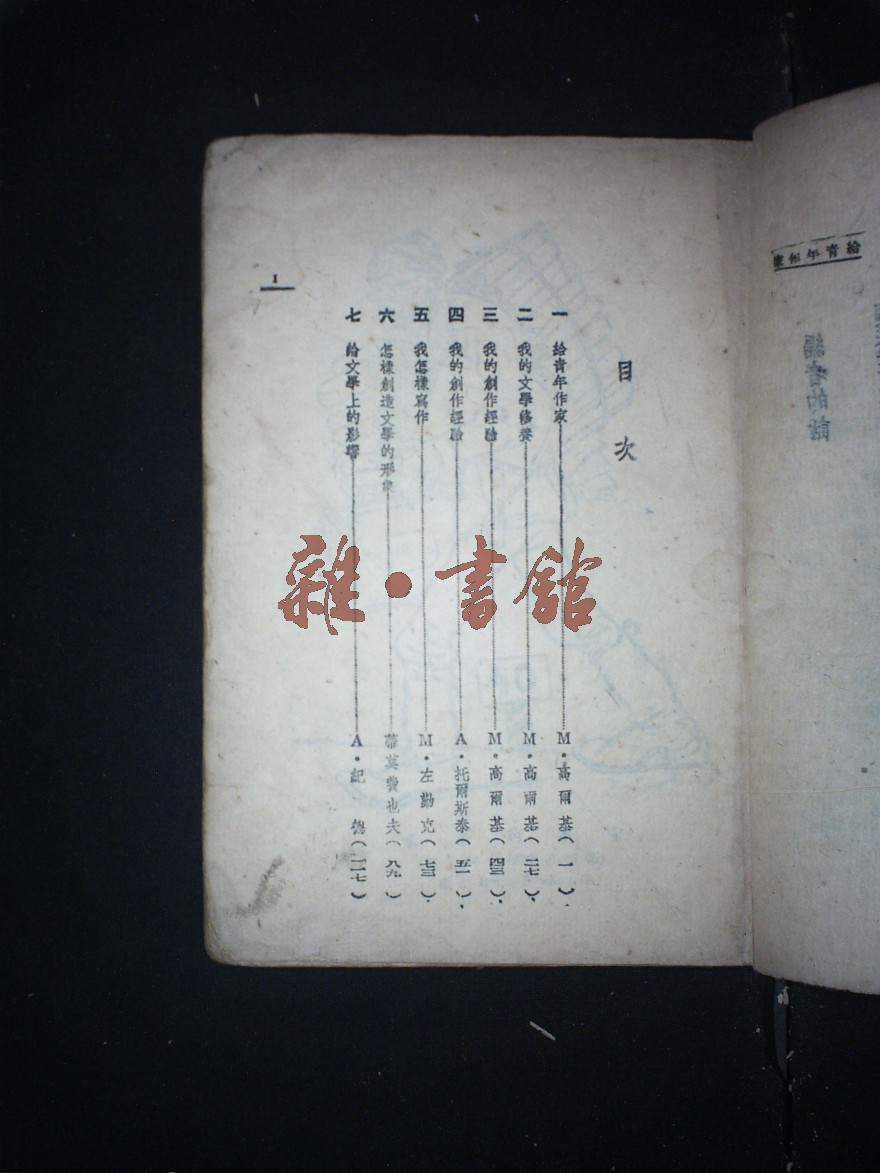 給青年作家
編者的話
目次
一 給青年作家 M·高爾基（一）
二 我的文學修養 M·高爾基（二七）
三 我的創作經驗 M·高爾基（四三）
四 我的創作經驗 A·托爾斯泰（五一）
五 我怎樣寫作 M·左勤克（七三）
六 怎樣創造文學的形象 蒂莫費也夫（八九）
七 給文學上的影響 A·紀德（一二七）
1
雜·書館